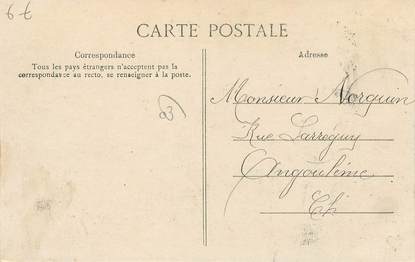 6 €
CARTE POSTALE
Correspondance
Tous les pays étrangers n'acceptent pas la
correspondance au recto, se renseigner à la poste.
93
Adresse
Monsieur Norquin
Rue Larréguy
Angoulême
Ch